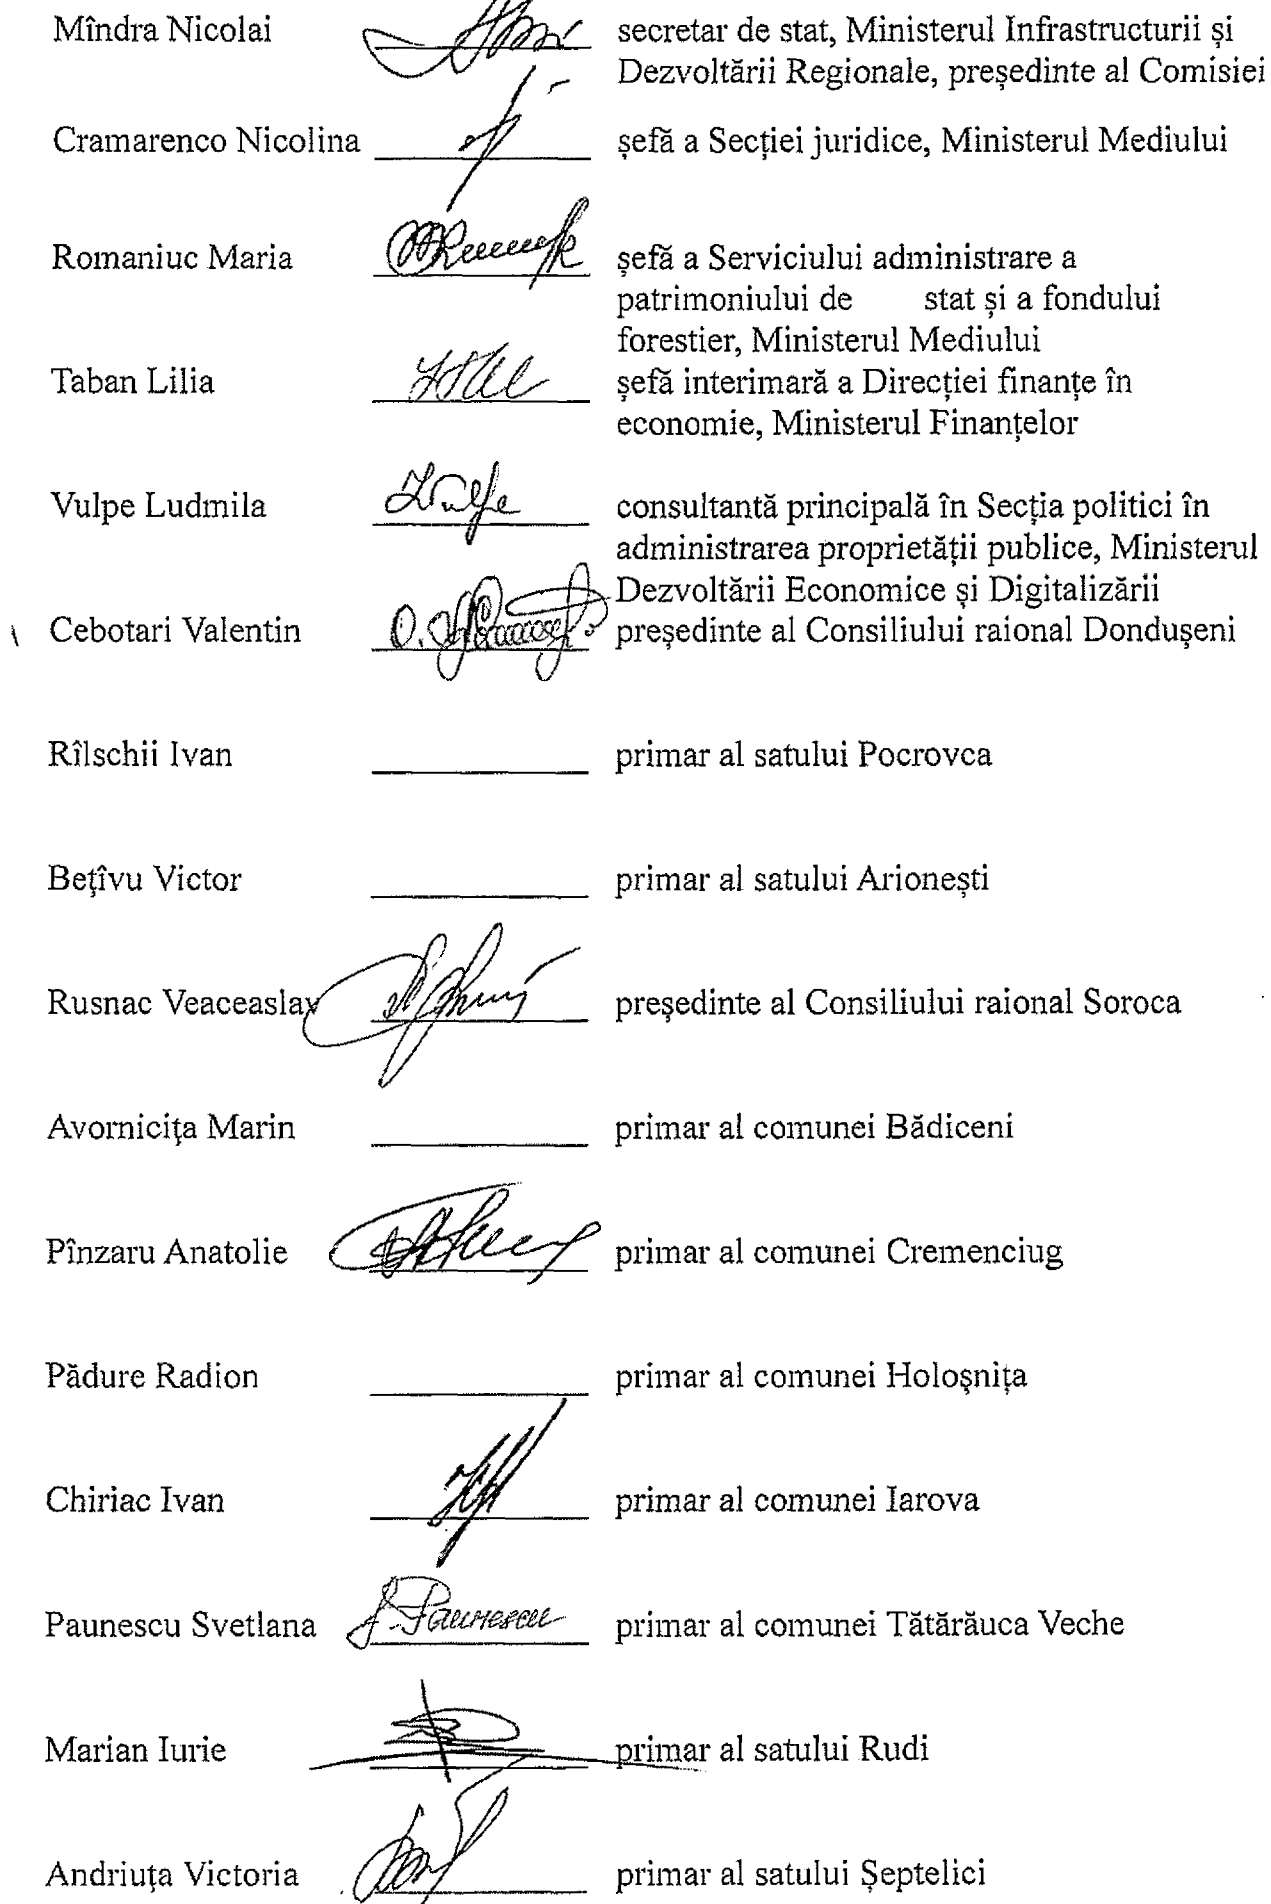 Mîndra Nicolai secretar de stat, Ministerul Infrastructurii și
Dezvoltării Regionale, președinte al Comisiei
Cramarenco Nicolina șefă a Secției juridice, Ministerul Mediului
Romaniuc Maria șefă a Serviciului administrare a
patrimoniului de stat și a fondului
forestier, Ministerul Mediului
Taban Lilia șefă interimară a Direcției finanțe în
economie, Ministerul Finanțelor
Vulpe Ludmila consultantă principală în Secția politici în
administrarea proprietății publice, Ministerul
Dezvoltării Economice și Digitalizării
Cebotari Valentin președinte al Consiliului raional Dondușeni
Rîlschii Ivan primar al satului Pocrovca
Bețîvu Victor primar al satului Arionești
Rusnac Veaceaslav președinte al Consiliului raional Soroca
Avornicița Marin primar al comunei Bădiceni
Pînzaru Anatolie primar al comunei Cremenciug
Pădure Radion primar al comunei Holoșnița
Chiriac Ivan primar al comunei Iarova
Paunescu Svetlana primar al comunei Tătărăuca Veche
Marian Iurie primar al satului Rudi
Andriuța Victoria primar al satului Șeptelici